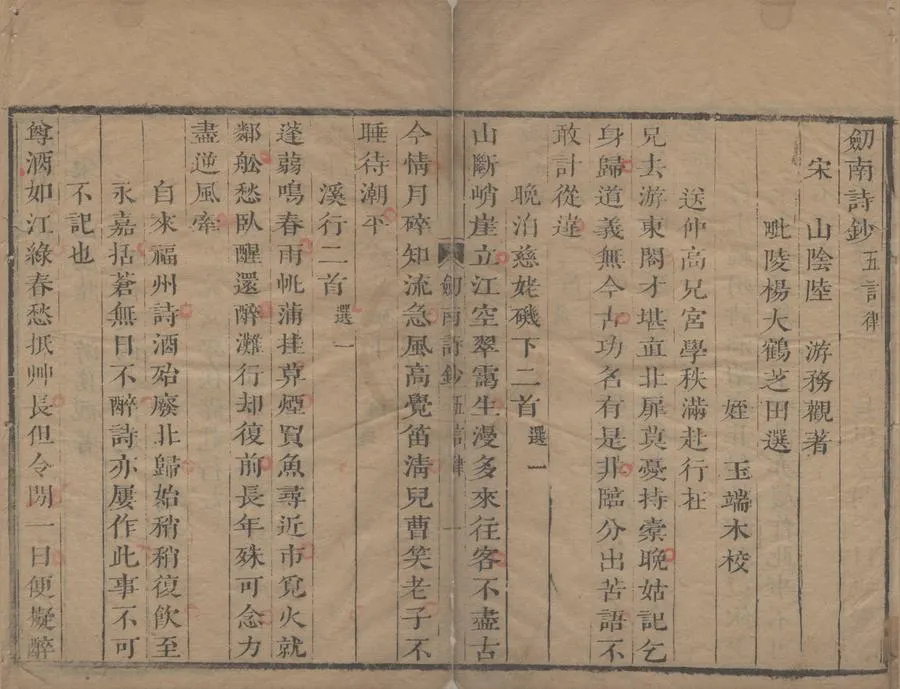 劒南詩鈔 五言律
宋 山陰陸 游務觀著
毗陵楊大鶴芝田選
姪 玉端木校
送仲高兄宮學秩滿赴行在
兄去游東閣才堪直北扉莫憂持橐晚姑記乞
身歸道義無今古功名有是非臨分出苦語不
敢計從違
晚泊慈姥磯下二首 選一
山斷峭崖立江空翠靄生漫多來往客不盡古
今情月碎知流急風高覺笛淸兒曹笑老子不
睡待潮平
劒南詩鈔 五言律 一
溪行二首 選一
蓬蒻鳴春雨帆蒲挂莫煙買魚尋近市覓火就
鄰舩愁臥醒還醉灘行却復前長年殊可念力
盡逆風牽
自來福州詩酒殆廢北歸始稍稍復飲至
永嘉括蒼無日不醉詩亦屢作此事不可
不記也
尊酒如江綠春愁抵艸長但令閒一日便擬醉